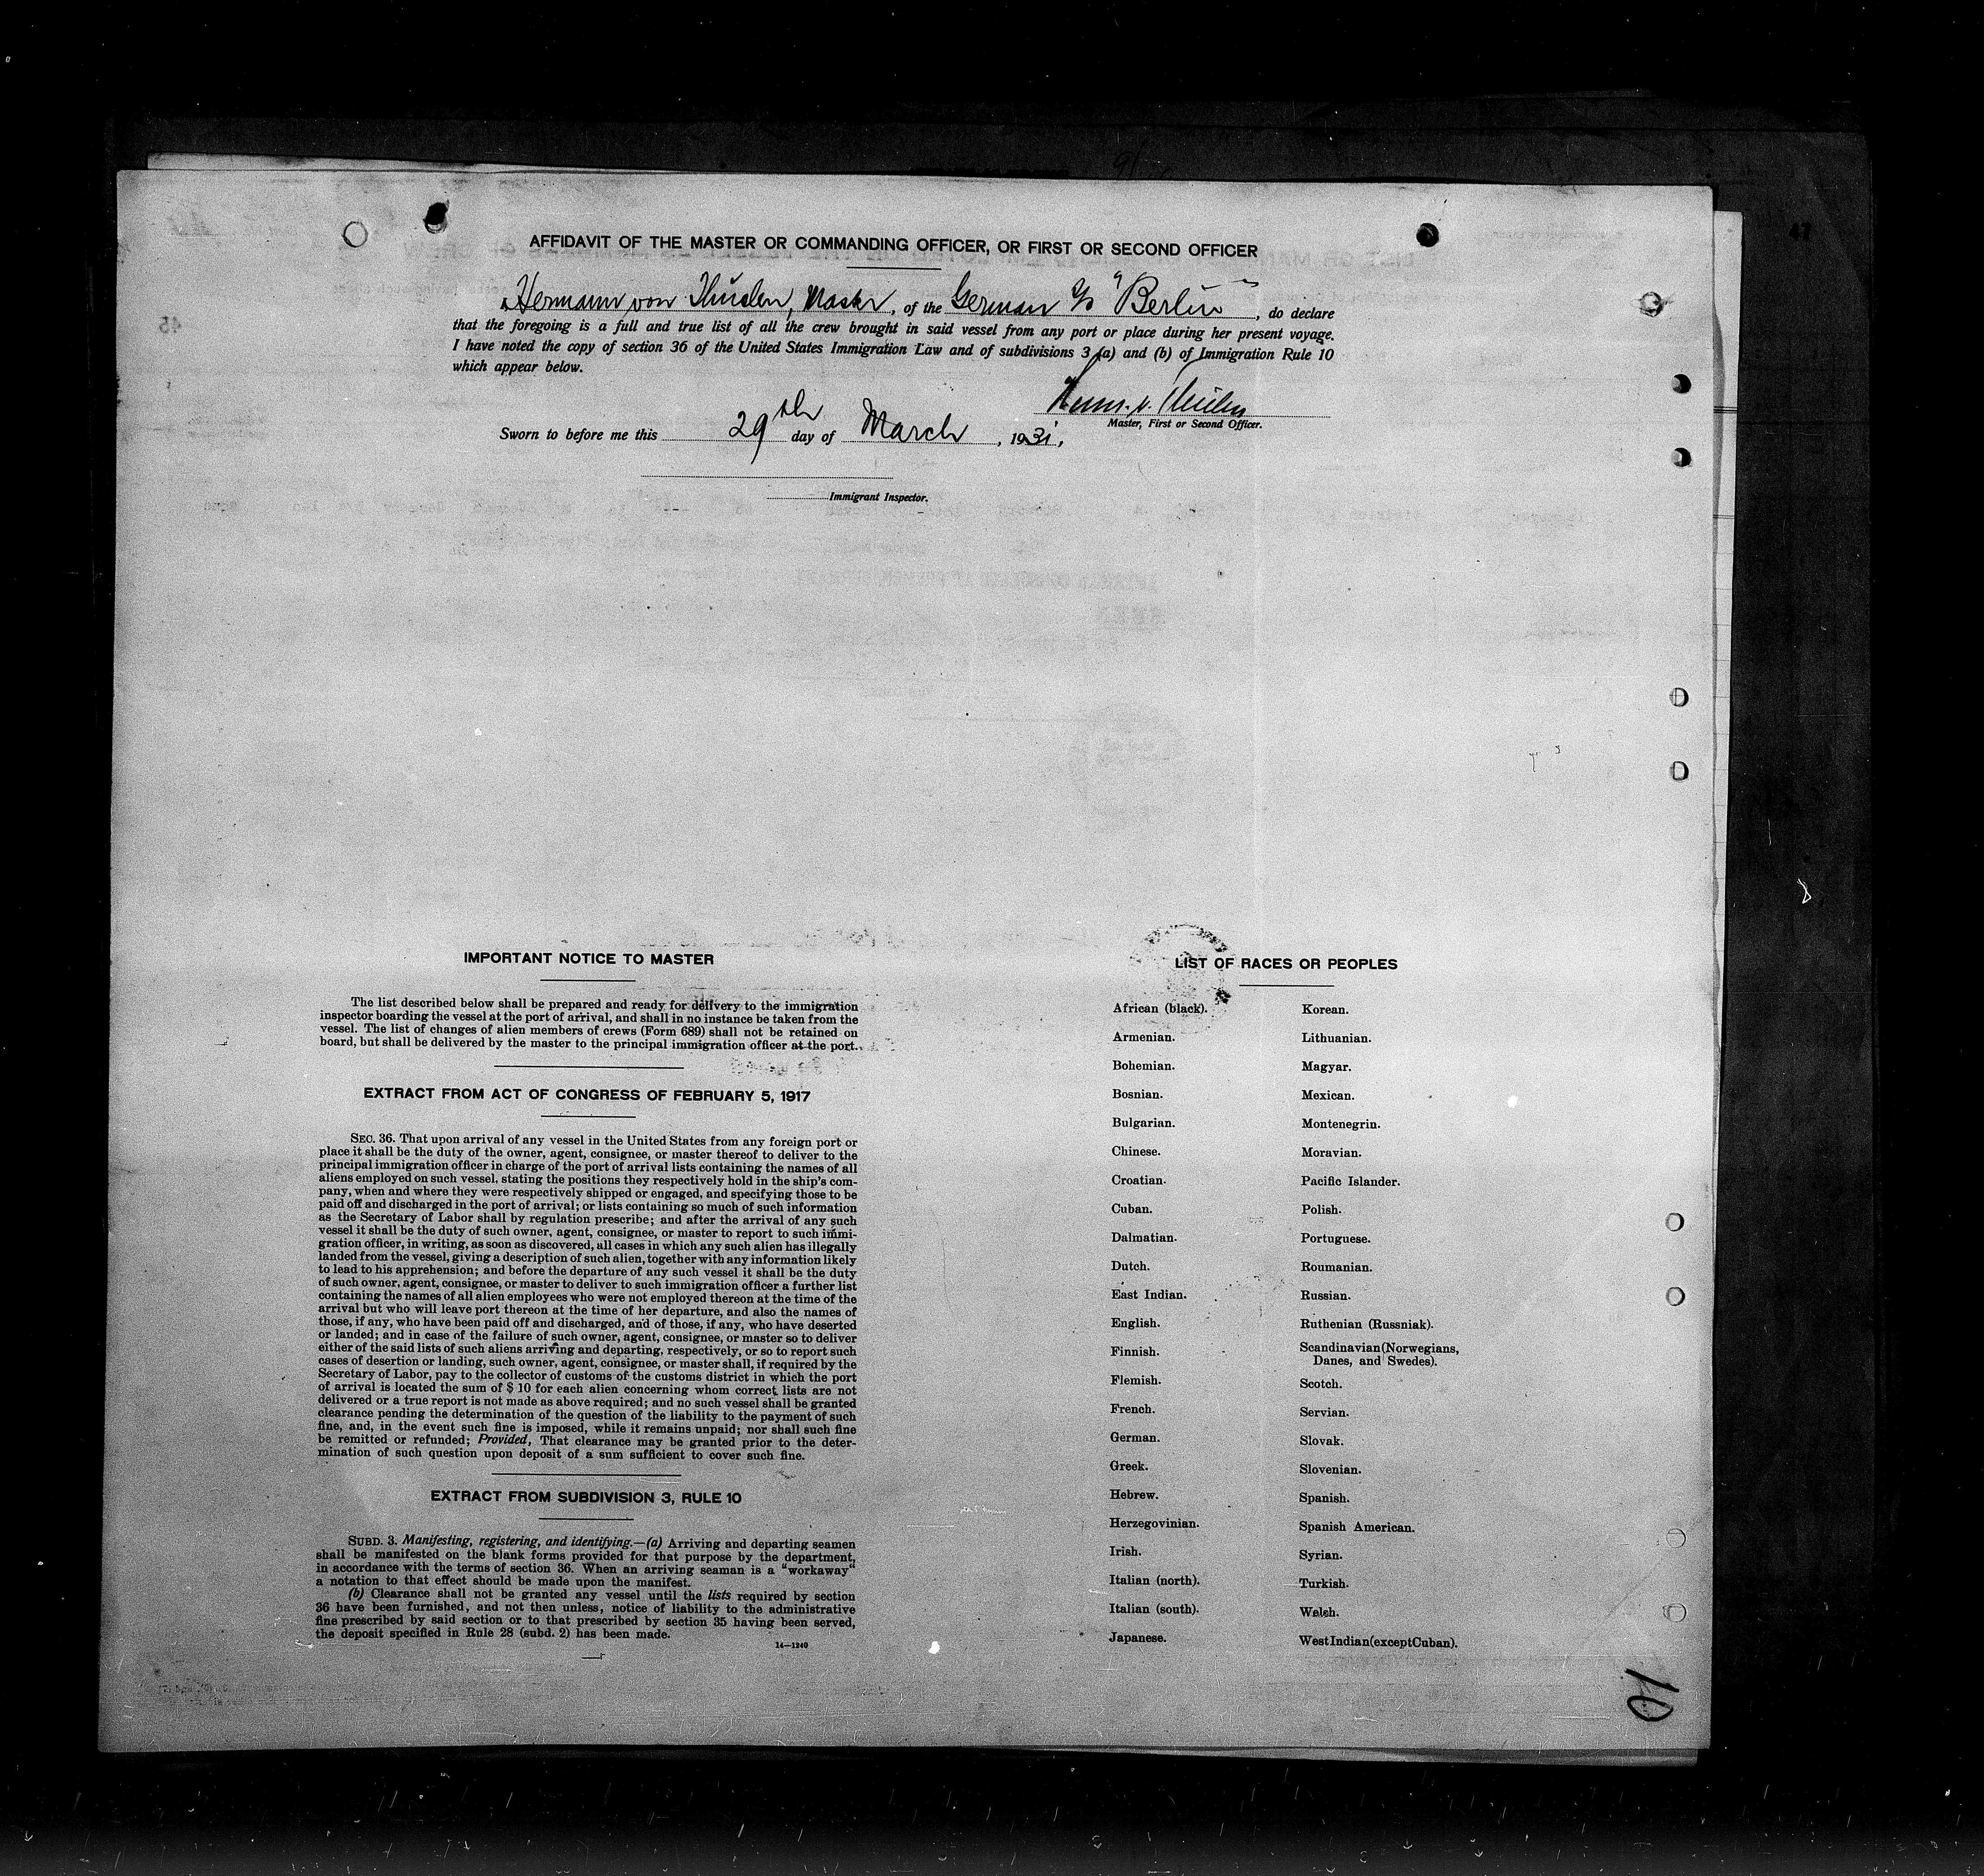 AFFIDAVIT OF THE MASTER OR COMMANDING OFFICER, OR FIRST OR SECOND OFFICER
Hermann von Thülen, Master, of the German S/S "Berlin", do declare
that the foregoing is a full and true list of all the crew brought in said vessel from any port or place during her present voyage.
I have noted the copy of section 36 of the United States Immigration Law and of subdivisions 3 (a) and (b) of Immigration Rule 10
which appear below.
Herm. v. Thülen
Master, First or Second Officer.
Sworn to before me this 29th day of March, 1931,
Immigrant Inspector.
IMPORTANT NOTICE TO MASTER
The list described below shall be prepared and ready for delivery to the immigration
inspector boarding the vessel at the port of arrival, and shall in no instance be taken from the
vessel. The list of changes of alien members of crews (Form 689) shall not be retained on
board, but shall be delivered by the master to the principal immigration officer at the port.
EXTRACT FROM ACT OF CONGRESS OF FEBRUARY 5, 1917
SEC. 36. That upon arrival of any vessel in the United States from any foreign port or
place it shall be the duty of the owner, agent, consignee, or master thereof to deliver to the
principal immigration officer in charge of the port of arrival lists containing the names of all
aliens employed on such vessel, stating the positions they respectively hold in the ship's com-
pany, when and where they were respectively shipped or engaged, and specifying those to be
paid off and discharged in the port of arrival; or lists containing so much of such information
as the Secretary of Labor shall by regulation prescribe; and after the arrival of any such
vessel it shall be the duty of such owner, agent, consignee, or master to report to such immi-
gration officer, in writing, as soon as discovered, all cases in which any such alien has illegally
landed from the vessel, giving a description of such alien, together with any information likely
to lead to his apprehension; and before the departure of any such vessel it shall be the duty
of such owner, agent, consignee, or master to deliver to such immigration officer a further list
containing the names of all alien employees who were not employed thereon at the time of the
arrival but who will leave port thereon at the time of her departure, and also the names of
those, if any, who have been paid off and discharged, and of those, if any, who have deserted
or landed; and in case of the failure of such owner, agent, consignee, or master so to deliver
either of the said lists of such aliens arriving and departing, respectively, or so to report such
cases of desertion or landing, such owner, agent, consignee, or master shall, if required by the
Secretary of Labor, pay to the collector of customs of the customs district in which the port
of arrival is located the sum of $ 10 for each alien concerning whom correct lists are not
delivered or a true report is not made as above required; and no such vessel shall be granted
clearance pending the determination of the question of the liability to the payment of such
fine, and, in the event such fine is imposed, while it remains unpaid; nor shall such fine
be remitted or refunded; Provided, That clearance may be granted prior to the deter-
mination of such question upon deposit of a sum sufficient to cover such fine.
EXTRACT FROM SUBDIVISION 3, RULE 10
SUBD. 3. Manifesting, registering, and identifying.—(a) Arriving and departing seamen
shall be manifested on the blank forms provided for that purpose by the department,
in accordance with the terms of section 36. When an arriving seaman is a "workaway"
a notation to that effect should be made upon the manifest.
(b) Clearance shall not be granted any vessel until the lists required by section
36 have been furnished, and not then unless, notice of liability to the administrative
fine prescribed by said section or to that prescribed by section 35 having been served,
the deposit specified in Rule 28 (subd. 2) has been made.
14—1240
LIST OF RACES OR PEOPLES
African (black).
Armenian.
Bohemian.
Bosnian.
Bulgarian.
Chinese.
Croatian.
Cuban.
Dalmatian.
Dutch.
East Indian.
English.
Finnish.
Flemish.
French.
German.
Greek.
Hebrew.
Herzegovinian.
Irish.
Italian (north).
Italian (south).
Japanese.
Korean.
Lithuanian.
Magyar.
Mexican.
Montenegrin.
Moravian.
Pacific Islander.
Polish.
Portuguese.
Roumanian.
Russian.
Ruthenian (Russniak).
Scandinavian (Norwegians,
Danes, and Swedes).
Scotch.
Servian.
Slovak.
Slovenian.
Spanish.
Spanish American.
Syrian.
Turkish.
Welsh.
West Indian (except Cuban).
10
47
8